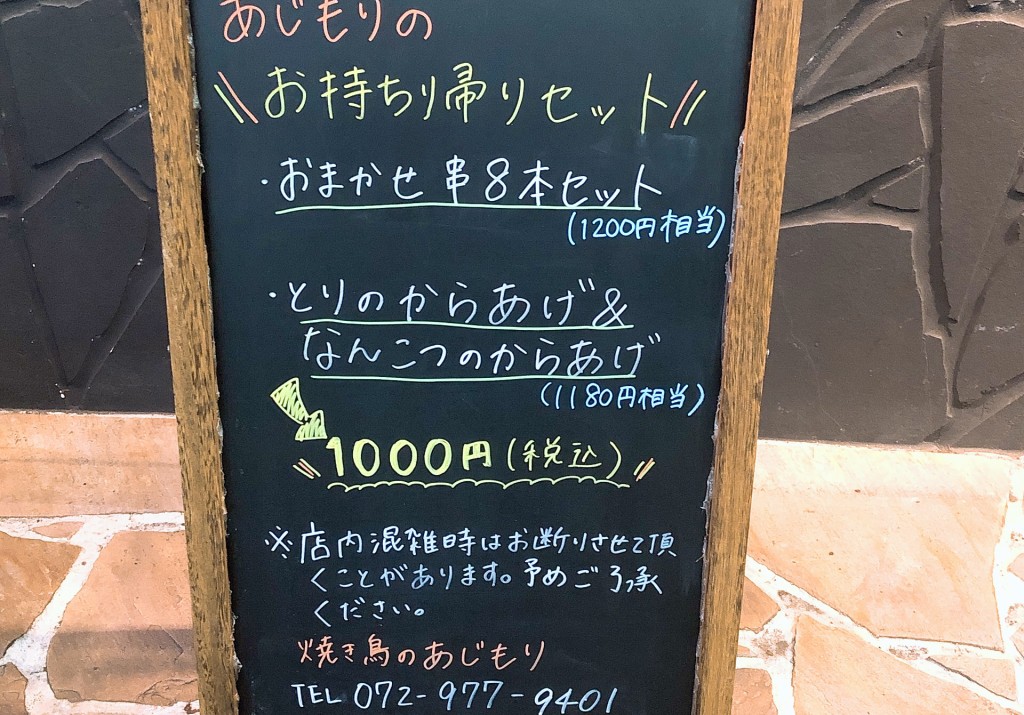 あじもりの
\\お持ち帰りセット//
・おまかせ串8本セット
(1200円相当)
・とりのからあげ&
なんこつのからあげ
(1180円相当)
1000円(税込)
※店内混雑時はお断りさせて頂
くことがあります。予めご了承
ください。
焼き鳥のあじもり
TEL 072-977-9401